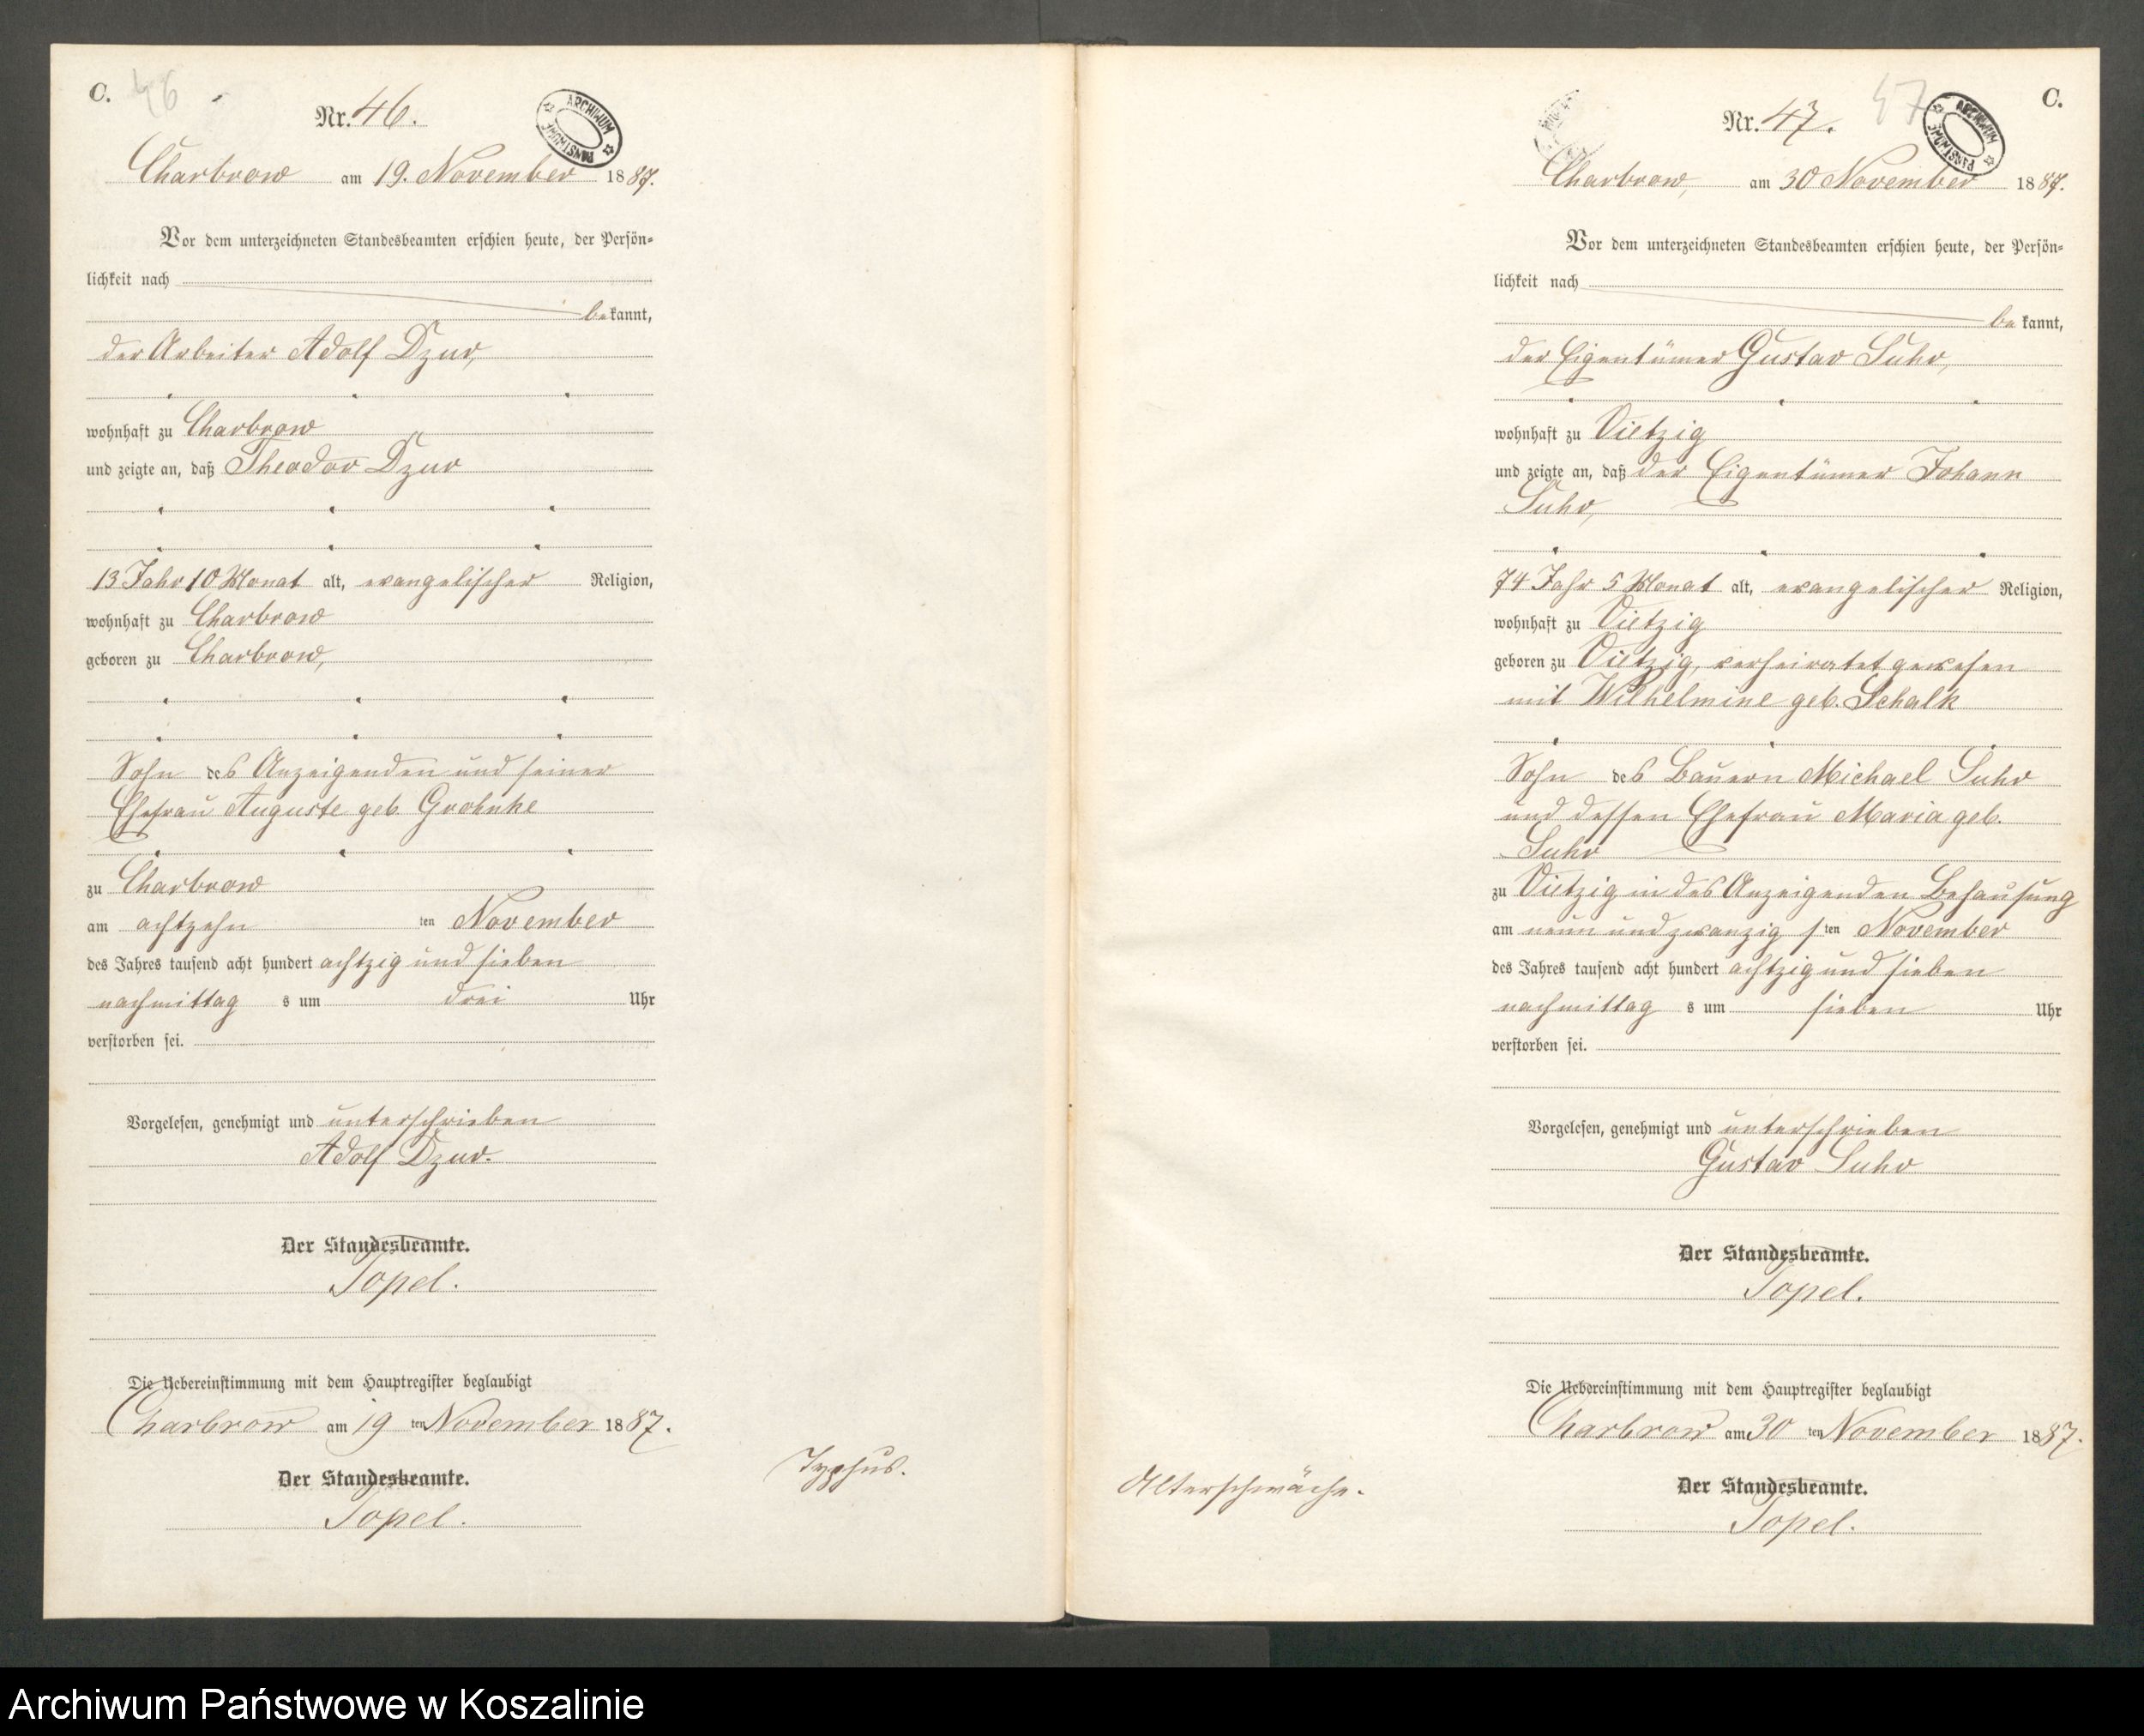 C.
46
Nr. 46.
ARCHIWUM PAŃSTWOWE
Charbrow am 19. November 1887.
Vor dem unterzeichneten Standesbeamten erschien heute, der Persön-
lichkeit nach
bekannt,
der Arbeiter Adolf Dzur,
wohnhaft zu Charbrow
und zeigte an, daß Theodor Dzur
13 Jahr 10 Monat alt, evangelischer Religion,
wohnhaft zu Charbrow
geboren zu Charbrow,
Sohn des Anzeigenden und seiner
Ehefrau Auguste geb. Grohnke
zu Charbrow
am achtzehn ten November
des Jahres tausend acht hundert achtzig und sieben
nachmittag s um drei Uhr
verstorben sei.
Vorgelesen, genehmigt und unterschrieben
Adolf Dzur.
Der Standesbeamte.
Topel.
Die Uebereinstimmung mit dem Hauptregister beglaubigt
Charbrow am 19 ten November 1887.
Der Standesbeamte.
Topel.
Typhus.
47
C.
Nr. 47.
ARCHIWUM PAŃSTWOWE
Charbrow, am 30 November 1887.
Vor dem unterzeichneten Standesbeamten erschien heute, der Persön-
lichkeit nach
bekannt,
der Eigentümer Gustav Suhr,
wohnhaft zu Vietzig
und zeigte an, daß der Eigentümer Johann
Suhr,
74 Jahr 5 Monat alt, evangelischer Religion,
wohnhaft zu Vietzig
geboren zu Vietzig, verheiratet gewesen
mit Wilhelmine geb. Schalk
Sohn des Bauern Michael Suhr
und dessen Ehefrau Maria geb.
Suhr
zu Vietzig in des Anzeigenden Behausung
am neun und zwanzig s ten November
des Jahres tausend acht hundert achtzig und sieben
nachmittag s um sieben Uhr
verstorben sei.
Vorgelesen, genehmigt und unterschrieben
Gustav Suhr
Der Standesbeamte.
Topel.
Die Uebereinstimmung mit dem Hauptregister beglaubigt
Charbrow am 30 ten November 1887.
Der Standesbeamte.
Topel.
Alterschwäche.
Archiwum Państwowe w Koszalinie